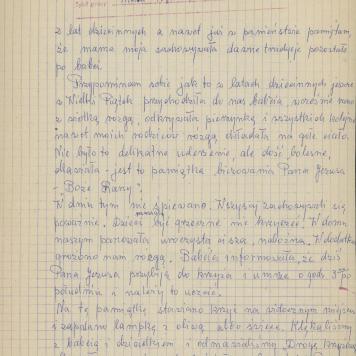 z lat dziecinnych a nawet już w pamieństwie pamiętam,
że mama moja zachowywała dawne tradycje pozostałe
po babci.
Przypominam sobie jak to w latach dziecinnych jeszcze
w Wielki Piątek przychodziła do nas babcia, wcześnie rano
z wiotką rózgą, odkrywała pierzynkę i wszystkich kolejno
nawet moich rodziców rózgą działała na gołe ciało.
Nie było to delikatne uderzenie, ale dość bolesne,
dlaczała - jest to pamiątka biczowania Pana Jezusa
- Boże Rany".
W dniu tym nie śpiewano. Wszyscy zachowywali się
poważnie. Dzieci musiały być grzeczne nie krzyczeć. W domu
naszym panowała uroczysta cisza, nabożna. W dodatku
grożono nam rózgą. Babcia informowała, że dziś
Pana Jezusa przybiją do krzyża i umrze o godz 3⁰⁰ po
południu i należy to uczcić.
Na tę pamiątkę stawiano krzyż na widocznym miejscu
i zapalano lampkę z oliwą albo świecę. Klękaliśmy
z babcią i dziadkiem i odmawialiśmy Drogę Krzyżową